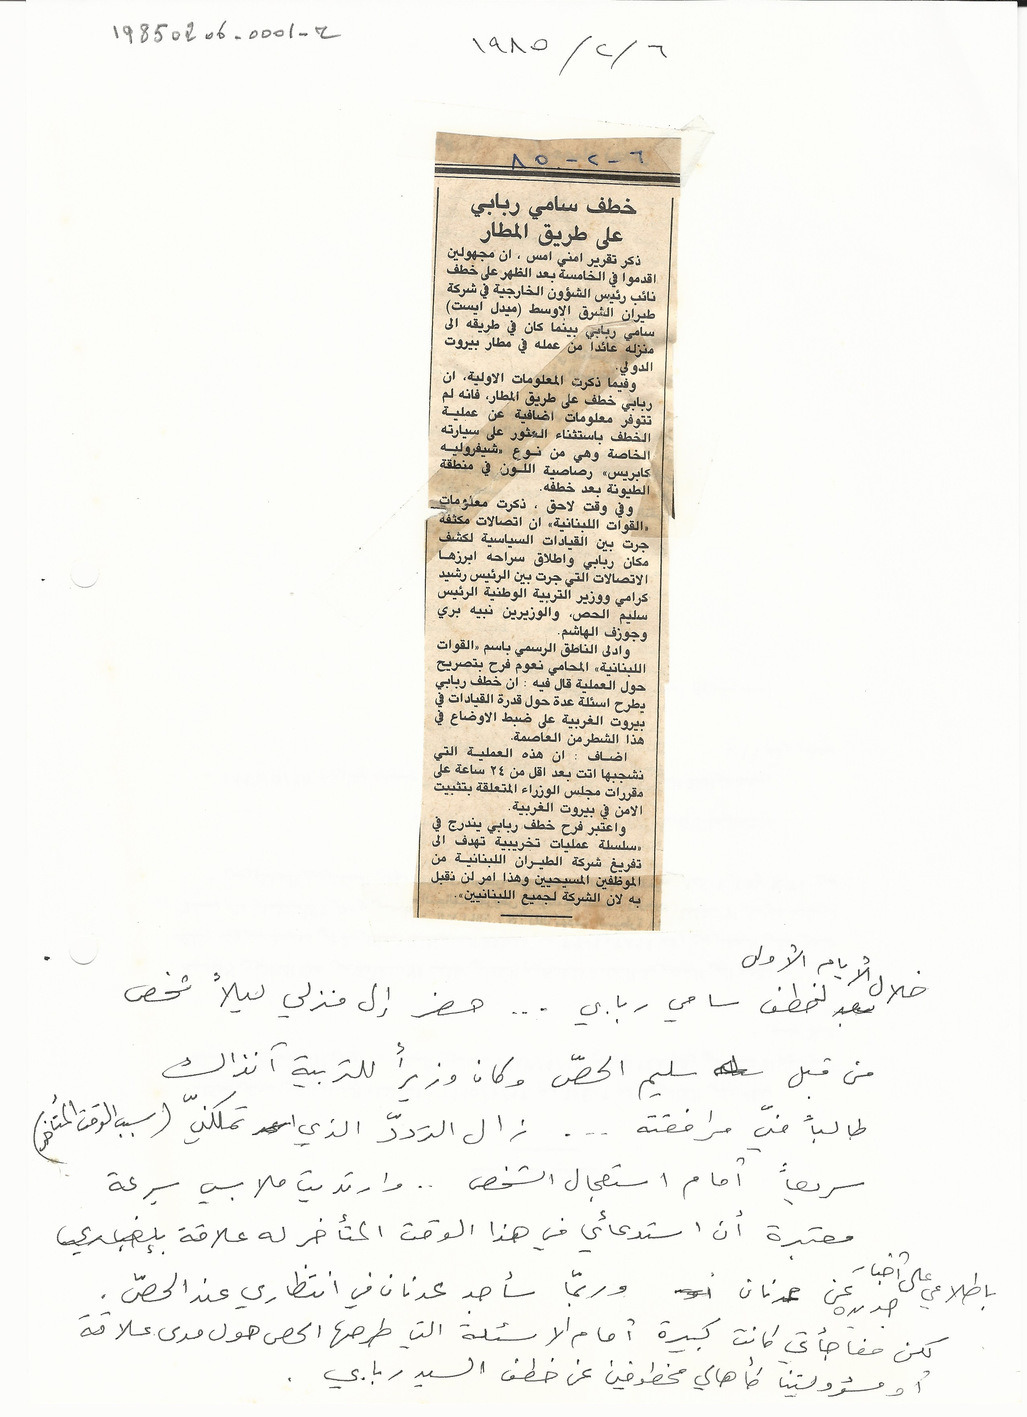 19850206-0001-2
١٩٨٥/٢/٦
٨٥-٢-٦
خطف سامي ربابي
على طريق المطار
ذكر تقرير امني امس ، ان مجهولين
اقدموا في الخامسة بعد الظهر على خطف
نائب رئيس الشؤون الخارجية في شركة
طيران الشرق الاوسط (ميدل ايست)
سامي ربابي بينما كان في طريقه الى
منزله عائدا من عمله في مطار بيروت
الدولي.
وفيما ذكرت المعلومات الاولية، ان
ربابي خطف على طريق المطار، فانه لم
تتوفر معلومات اضافية عن عملية
الخطف باستثناء العثور على سيارته
الخاصة وهي من نوع «شيفروليه
كابريس» رصاصية اللون في منطقة
الطيونة بعد خطفه.
وفي وقت لاحق ، ذكرت معلومات
«القوات اللبنانية» ان اتصالات مكثفة
جرت بين القيادات السياسية لكشف
مكان ربابي واطلاق سراحه ابرزها
الاتصالات التي جرت بين الرئيس رشيد
كرامي ووزير التربية الوطنية الرئيس
سليم الحص، والوزيرين نبيه بري
وجوزف الهاشم.
وادلى الناطق الرسمي باسم «القوات
اللبنانية» المحامي نعوم فرح بتصريح
حول العملية قال فيه : ان خطف ربابي
يطرح اسئلة عدة حول قدرة القيادات في
بيروت الغربية على ضبط الاوضاع في
هذا الشطر من العاصمة.
اضاف : ان هذه العملية التي
نشجبها اتت بعد اقل من ٢٤ ساعة على
مقررات مجلس الوزراء المتعلقة بتثبيت
الامن في بيروت الغربية.
واعتبر فرح خطف ربابي يندرج في
«سلسلة عمليات تخريبية تهدف الى
تفريغ شركة الطيران اللبنانية من
الموظفين المسيحيين وهذا امر لن نقبل
به لان الشركة لجميع اللبنانيين».
خلال الأيام الأولى
لخطف سامي ربابي ... حضر إلى منزلي ليلاً شخص
من قبل سليم الحصّ وكان وزيراً للتربية آنذاك
طالباً منّي مرافقته ... زال التردّد الذي تملكنيّ (بسبب الوقت المتأخر)
سريعاً أمام استعجال الشخص .. وارتديت ملابسي بسرعة
معتبرة أن استدعائي في هذا الوقت المتأخر له علاقة
باطلاعي على أخبار جديدة عن عدنان وربمّا سأجد عدنان في انتظاري عند الحصّ .
لكن مفاجأتي كانت كبيرة أمام الاسئلة التي طرحها الحص حول مدى علاقة
أو مسؤوليتنا كأهالي مخطوفين عن خطف السيد ربابي .